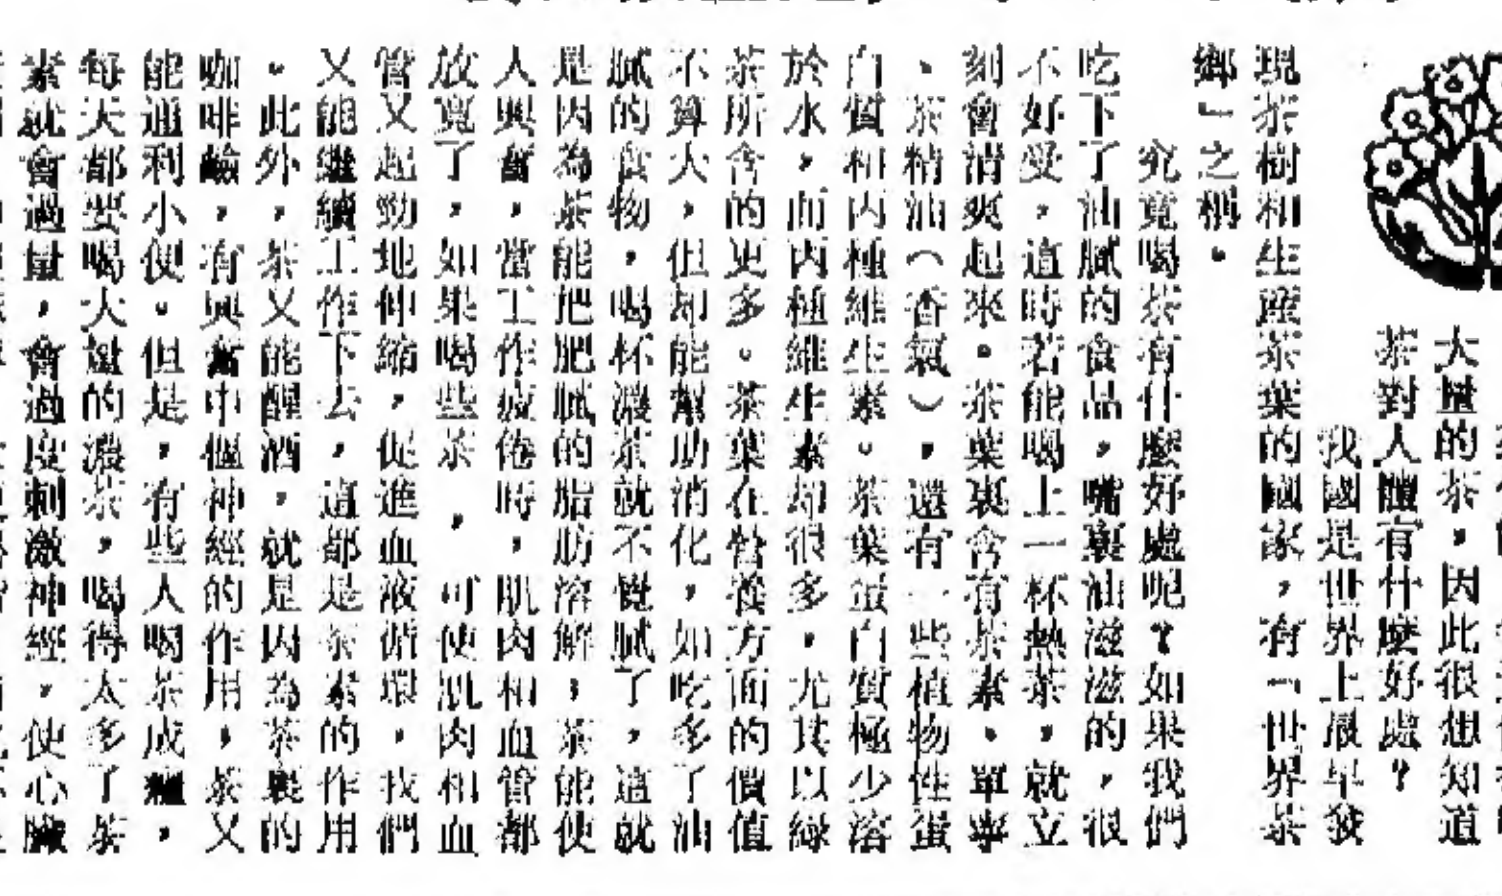 大量的茶，因此很想知道
茶對人體有什麼好處？
我國是世界上最早發
現茶樹和生產茶葉的國家，有「世界茶
鄉」之稱。
究竟喝茶有什麼好處呢？如果我們
吃下了油膩的食品，嘴裏油滋滋的，很
不好受，這時若能喝上一杯熱茶，就立
刻會清爽起來。茶葉裏含有茶素、單寧
、茶精油（香氣），還有一些植物性蛋
白質和丙種維生素。茶葉蛋白質極少溶
於水，而丙種維生素却很多，尤其以綠
茶所含的更多。茶葉在營養方面的價值
不算大，但却能幫助消化，如吃多了油
膩的食物，喝杯濃茶就不覺膩了，這就
是因為茶能把肥膩的脂肪溶解；茶能使
人興奮，當工作疲倦時，肌肉和血管都
放寬了，如果喝些茶，可使肌肉和血
管又起勁地伸縮，促進血液循環，我們
又能繼續工作下去，這都是茶素的作用
。此外，茶又能醒酒，就是因為茶裏的
咖啡鹼，有興奮中樞神經的作用，茶又
能通利小便。但是，有些人喝茶成癮，
每天都要喝大量的濃茶，喝得太多了茶
素就會過量，會過度刺激神經，使心臟